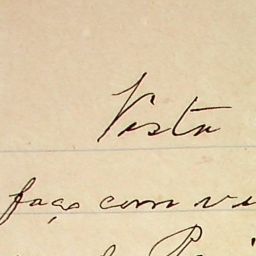 Vista
faço com vi